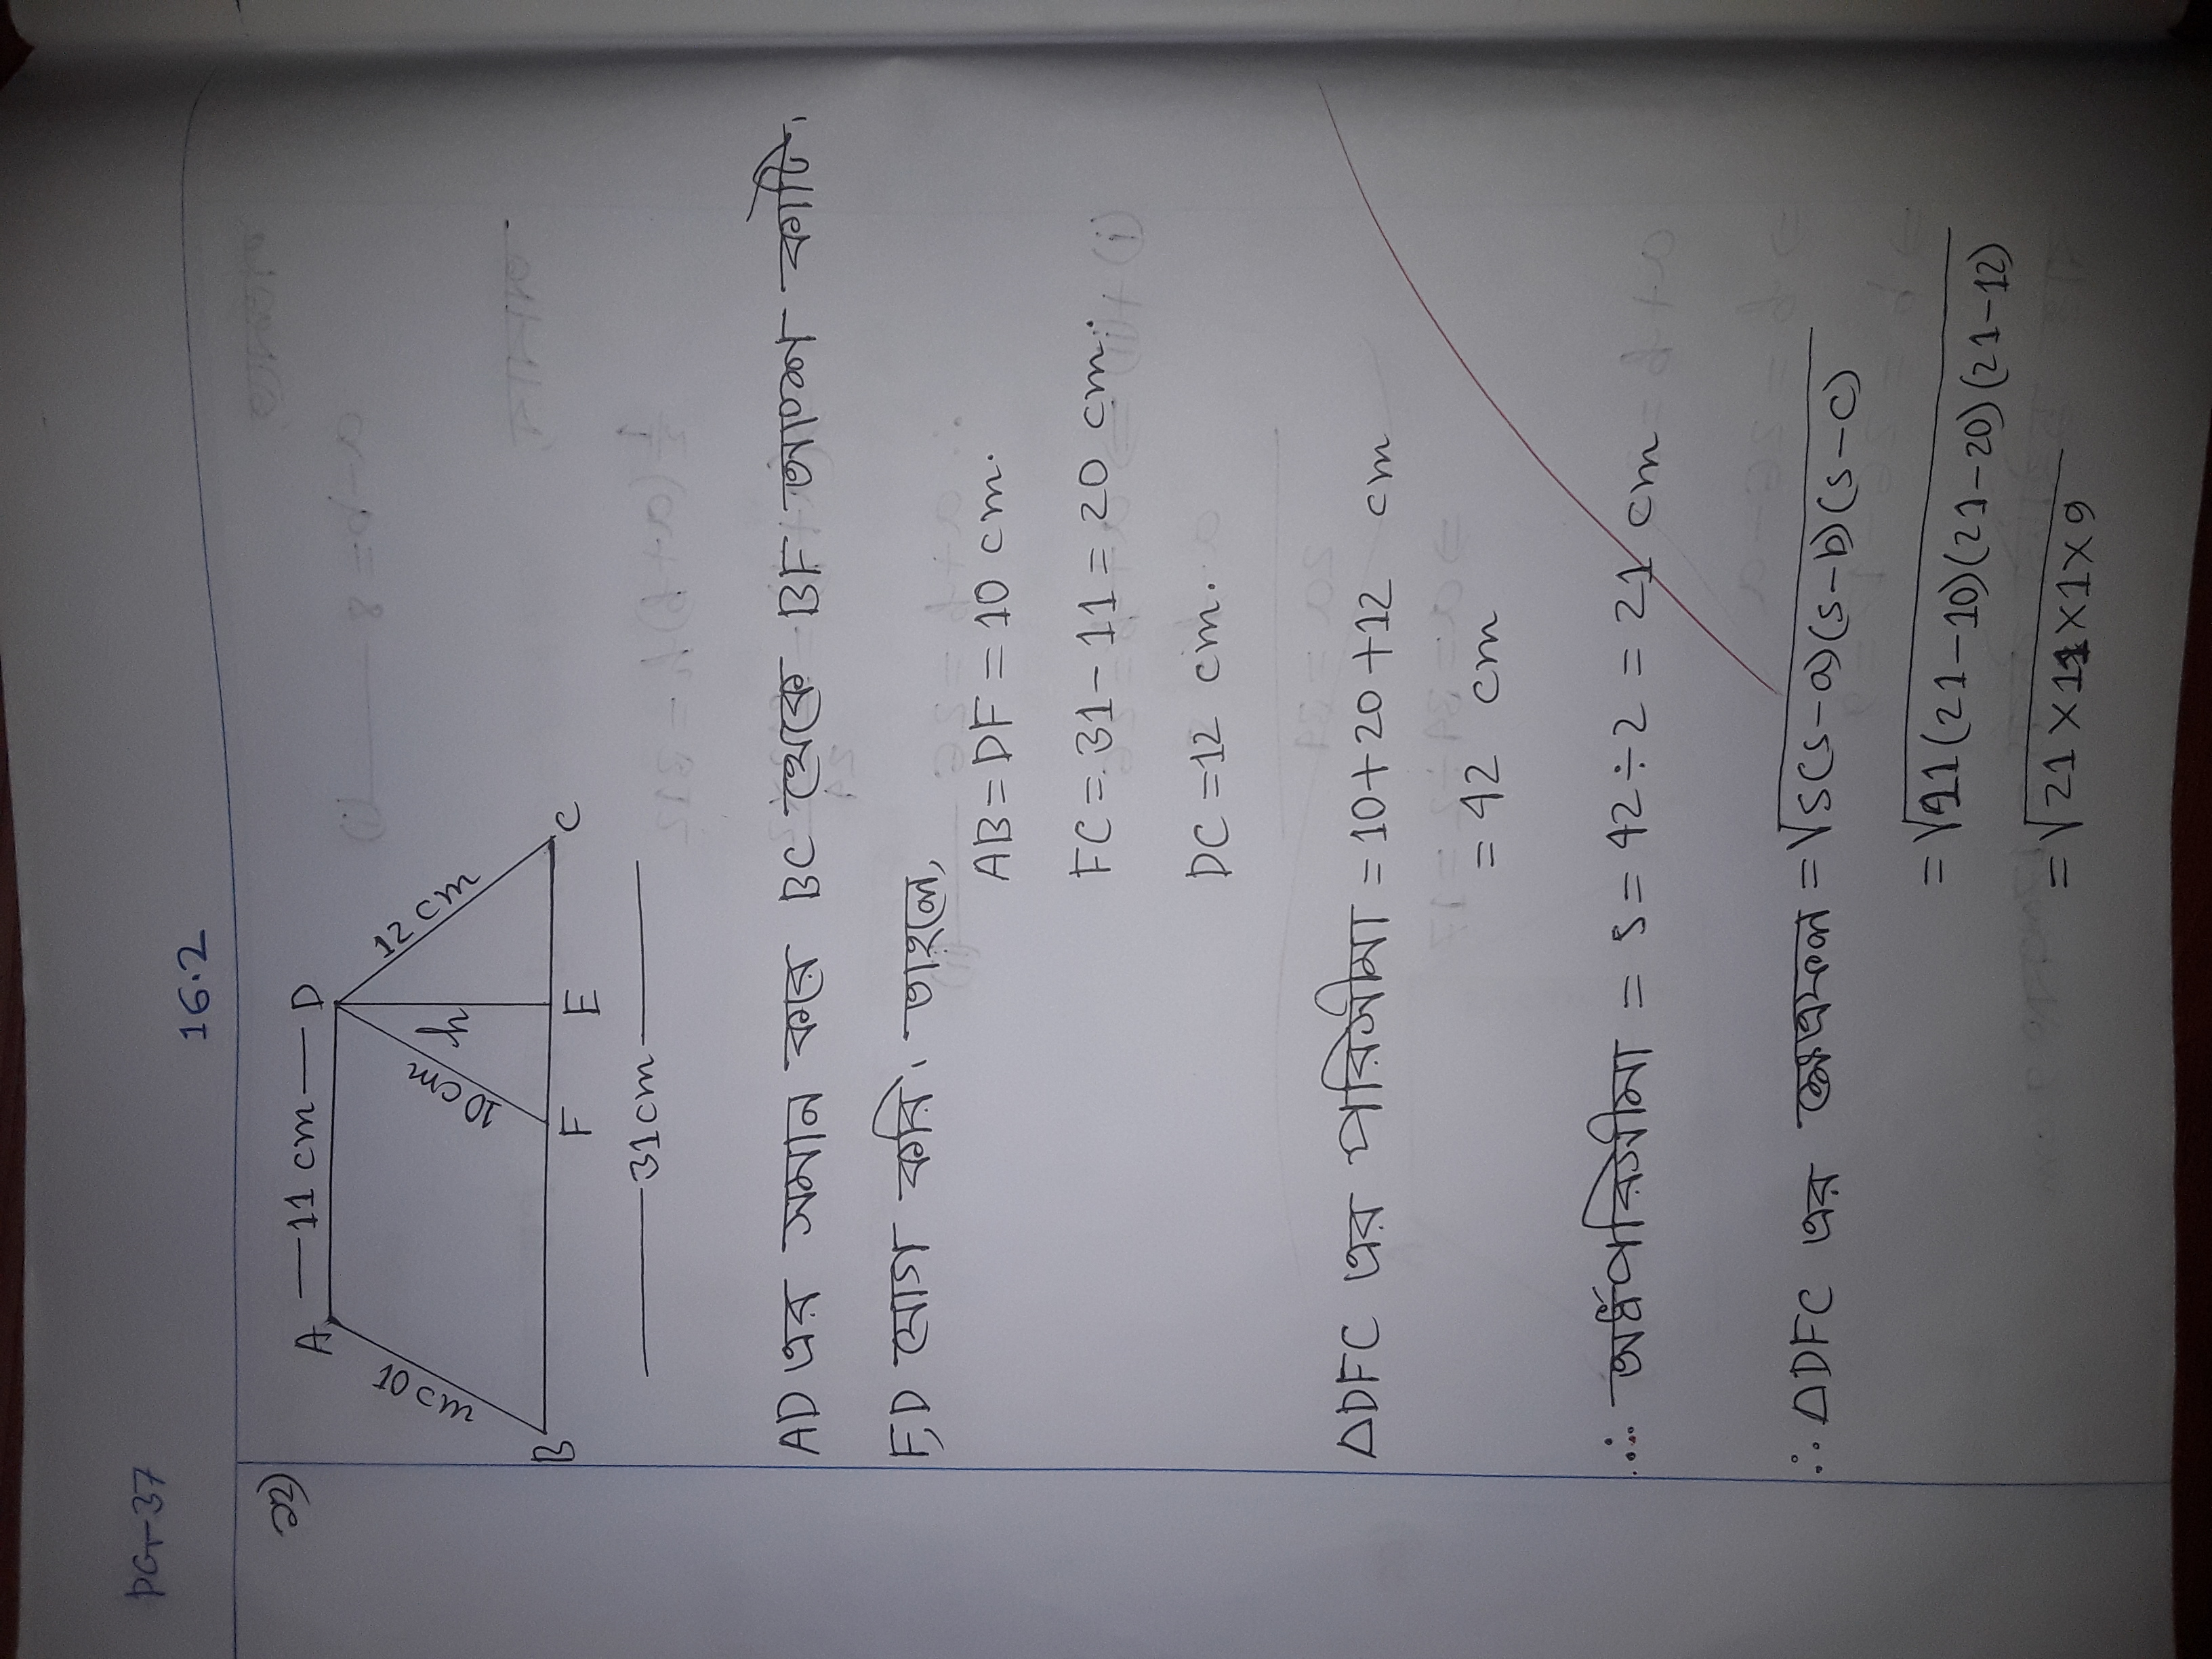 PG-37
16.2
১২)
A — 11 cm — D
10 cm
10 cm
h
12 cm
B F E C
31 cm
AD এর সমান করে BC থেকে BF অংশ কাটি।
F,D যোগ করি। তাহলে,
AB = DF = 10 cm.
FC = 31 - 11 = 20 cm.
DC = 12 cm.
ΔDFC এর পরিসীমা = 10 + 20 + 12 cm
= 42 cm
∴ অর্ধপরিসীমা = s = 42 ÷ 2 = 21 cm
∴ ΔDFC এর ক্ষেত্রফল = √s(s-a)(s-b)(s-c)
= √21(21-10)(21-20)(21-12)
= √21 × 11 × 1 × 9